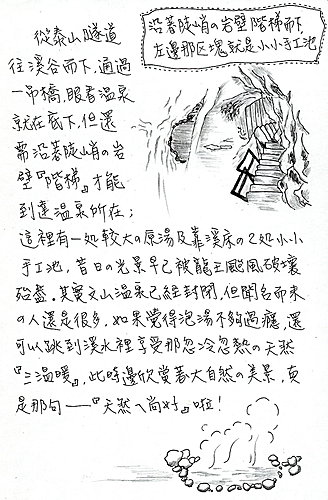 沿著陡峭の岩壁階梯而下,
左邊那区塊就是小小手工池
從泰山隧道
往溪谷而下,通過
一吊橋,眼看溫泉
就在底下,但還
需沿著陡峭の岩
壁『階梯』才能
到達溫泉所在;
這裡有一処較大の原湯及靠溪床の2処小小
手工池,昔日の光景早已被龍王颱風破壞
殆盡。其實文山溫泉已經封閉,但聞名而來
の人還是很多,如果覺得泡湯不夠過癮,還
可以跳到溪水裡享受那忽冷忽熱の天然
『三溫暖』,此時邊欣賞著大自然の美景,真
是那句——『天然ㄟ尚好』啦!